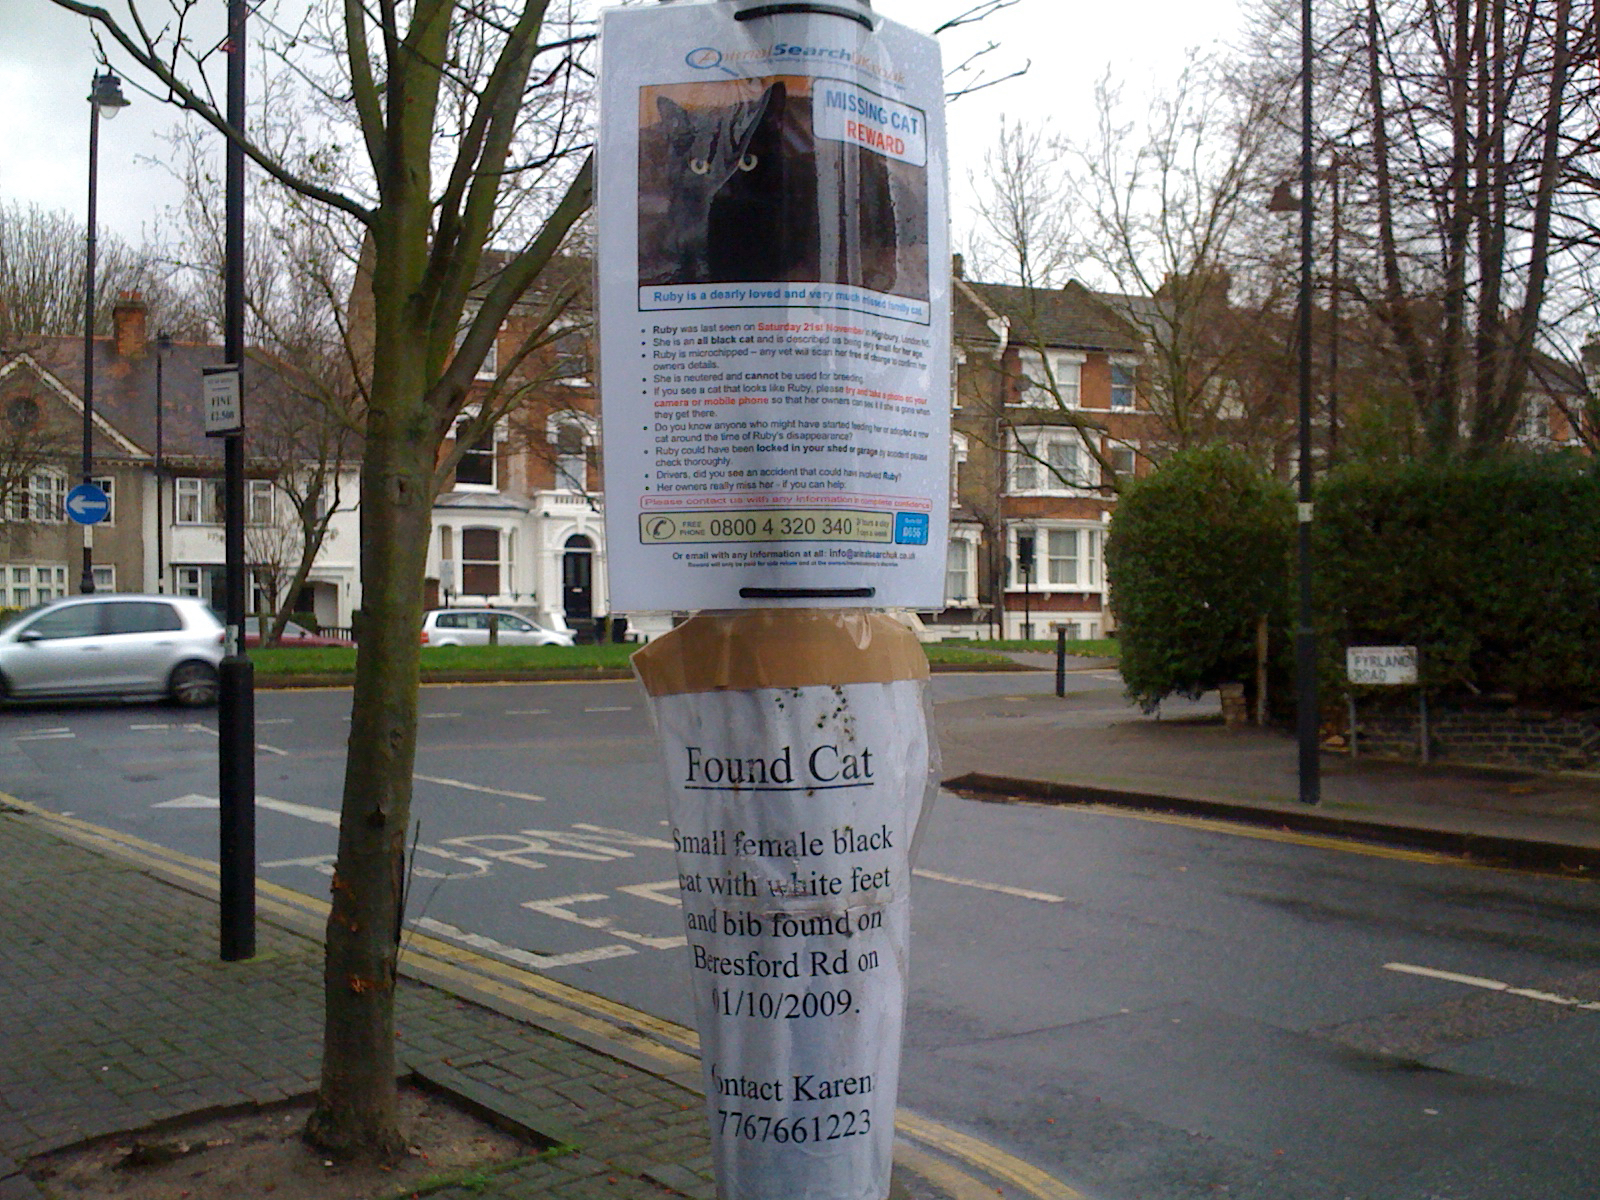 AnimalSearchUK.co.uk
MISSING CAT
REWARD
Ruby is a dearly loved and very much missed family cat
Ruby was last seen on Saturday 21st November in Highbury, London N5.
She is an all black cat and is described as being very small for her age.
Ruby is microchipped – any vet will scan her free of charge to confirm her
owners details.
She is neutered and cannot be used for breeding.
If you see a cat that looks like Ruby, please try and take a photo on your
camera or mobile phone so that her owners can see it if she is gone when
they get there.
Do you know anyone who might have started feeding her or adopted a new
cat around the time of Ruby's disappearance?
Ruby could have been locked in your shed or garage by accident please
check thoroughly.
Drivers, did you see an accident that could have involved Ruby?
Her owners really miss her - if you can help:
Please contact us with any information in complete confidence
FREE PHONE 0800 4 320 340 24 hours a day 7 days a week
Or email with any information at all: info@animalsearchuk.co.uk
Found Cat
Small female black
cat with white feet
and bib found on
Beresford Rd on
01/10/2009.
ontact Karen
7767661223
FINE
£2,500
PYRLAND
ROAD
TURN